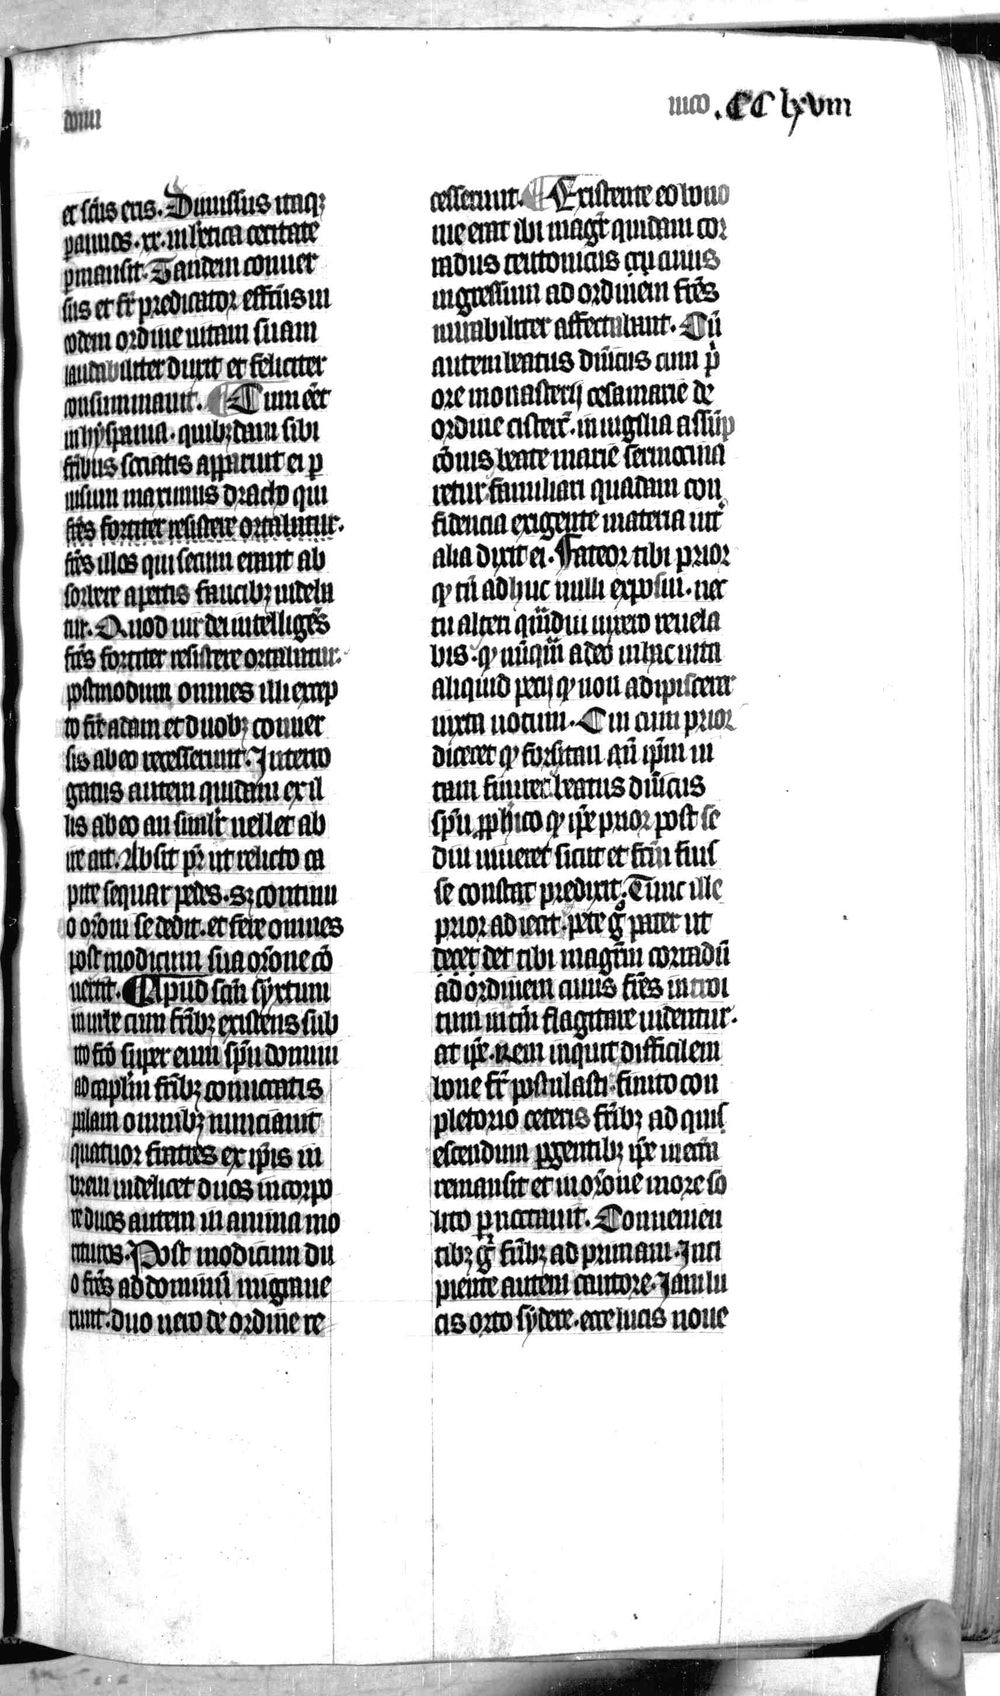 domi
nico .CClxviii
et scās eris. Dimissus itaqȝ
p annos .xx. in hr̄etica cecitate
ꝑmansit. Tandem conuer
sus et fr̄ predicator effc̄us in
eodem ordine uitam suam
laudabiliter duxit et feliciter
consummauit. Cum eēt
in hyspania. quibȝdam sibi
fr̄ibus sociatis apparuit ei ꝑ
uisum maximus draco qui
fr̄es fortiter resistere ortabatur.
fr̄es illos qui secum erant ab
sorbere apertis faucibȝ uideba
tur. Quod uir dei intelligēs
fr̄es fortiter resistere ortabatur.
postmodum omnes illi excep
to fr̄e adam et duobȝ conuer
sis ab eo recesserunt. Interro
gatus autem quidam ex il
lis ab eo an simil̄r uellet ab
ire ait. Absit pr̄ ut relicto ca
pite sequar pedes. Sȝ continu
o or̄oni se dedit. et fere omnes
post modicum sua or̄one cō
uertit. Apud scm̄ syxtum
in urbe cum fr̄ibȝ existens sub
ito fc̄o super eum spū domini
ad capl̄m fr̄ibȝ conuocatis
palam omnibȝ nunciauit
quatuor fratres ex ip̄is in
breui uidelicet duos in corpo
re duos autem in anima mo
rituros. Post modicum du
o fr̄es ad dominū migraue
runt. duo uero de ordine re
cesserunt. Existente eo bono
nie erat ibi magr̄ quidam cor
radus teutonicus cuius
ingressum ad ordinem fr̄es
mirabiliter affectabant. Cū
autem beatus dn̄icus cum p̄
ore monasterij cesamarie de
ordine cisterc̄. in uigilia assūp
cōnis beate marie sermocina
retur familiari quadam con
fidencia exigente materia int̄
alia dixit ei. Fateor tibi prior
qƺ tn̄ adhuc nulli exposui. nec
tu alteri quādiu uixero reuela
bis. qƺ nūqūm adeo in hac uita
aliquid petij qƺ non adipiscerer
iuxta uotum. Cui cum prior
diceret qƺ forsitan an̄ ip̄m ui
tam finiret beatus dn̄icus
spū ꝓphico qƺ ip̄e prior post se
diu uiueret sicut et fc̄m fuis
se constat predixit. Tunc ille
prior adiecit. pete g̊ pater ut
deus det tibi magr̄m corradū
ad ordinem cuius fr̄es introi
tum in tm̄ flagitare uidentur.
at ip̄e. Rem inquit difficilem
bone fr̄ postulasti. finito con
pletorio ceteris fr̄ibȝ ad quis
escendum pergentibȝ ip̄e in ecc̄a
remansit et in or̄one more so
lito ꝑnoctauit. Conuenien
tibȝ g̊ fr̄ibȝ ad primam. Inci
piente autem cantore. Iam lu
cis orto sydere. ecce lucis noue